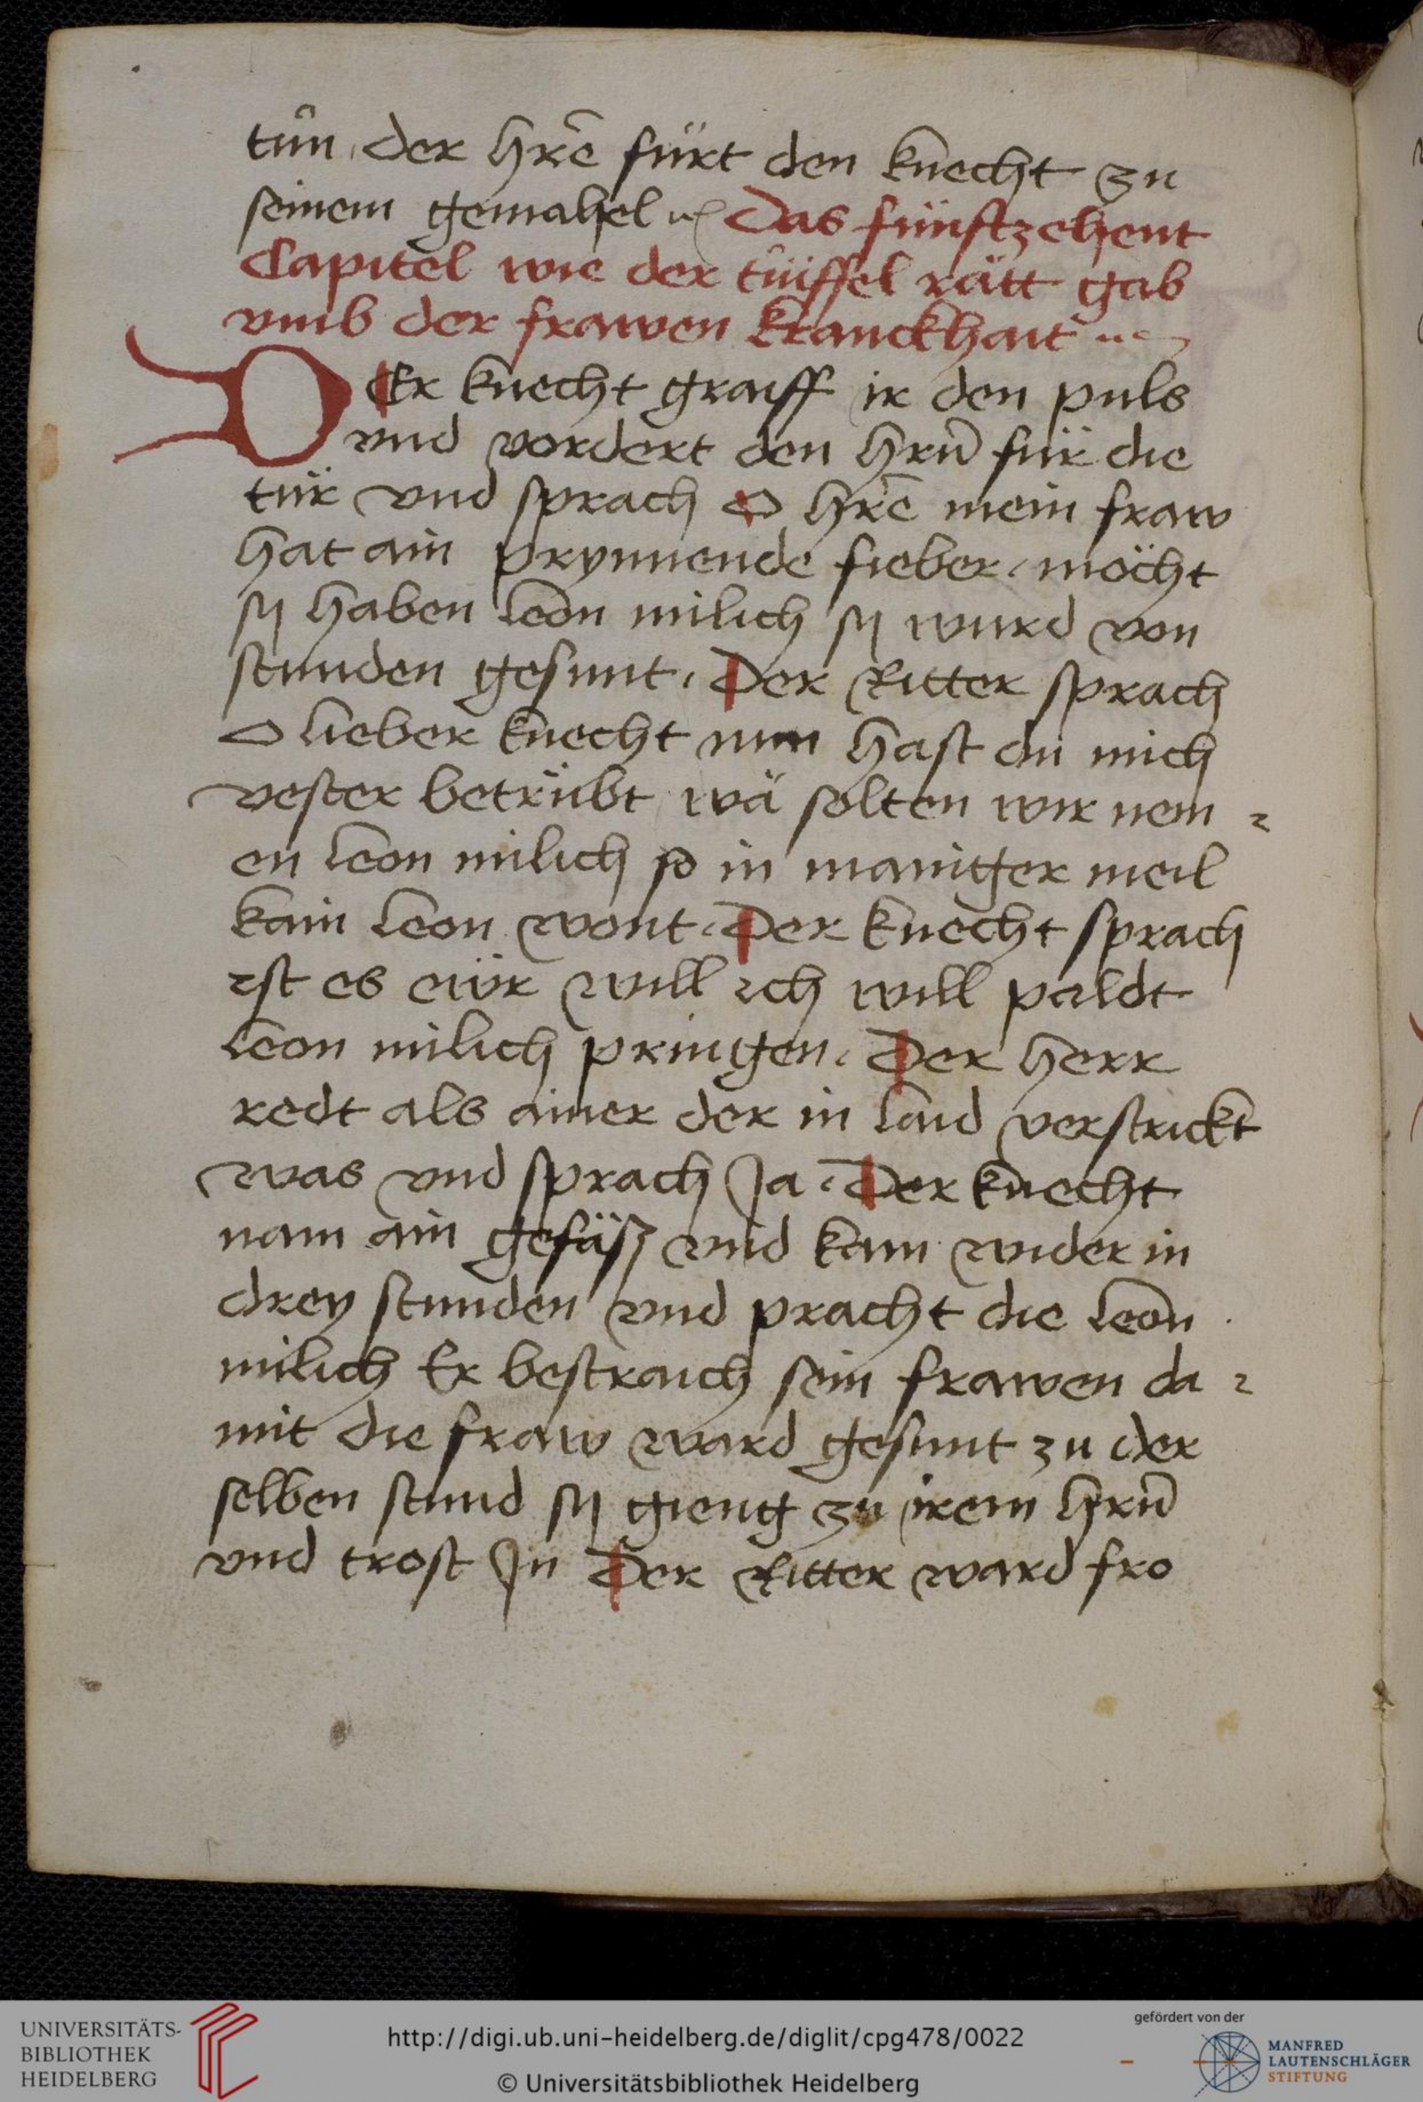 tůn · der hr̄e fürt den knecht zu
seinem gemahel ⁊c Das fünftzehent
Capitel wie der tüffel rätt gab
vmb der frawen kranckhait
DEr knecht graiff ir den puls
vnd vordert den hrn̄ für die
tür vnd sprach O hr̄e mein fraw
hat ain prynnende fieber · möcht
sÿ haben leon milich sÿ wurd von
stunden gesunt · Der Ritter sprach
O lieber knecht nun hast du mich
vester betrübt wä solten wir nem -
en leon milich so in maniger meil
kain leon wont · Der knecht sprach
ist es eür will ich will paldt
leon milich pringen · Der herr
redt als ainer der in laid verstrickt
was vnd sprach Ja · Der knecht
nam ain gefäß vnd kam wider in
drey stunden vnd pracht die leon
milich Er bestraich sein frawen da -
mit die fraw ward gesunt zu der
selben stund sÿ gieng zu irem hrn̄
vnd trost In Der Ritter ward fro
UNIVERSITÄTS-
BIBLIOTHEK
HEIDELBERG
http://digi.ub.uni-heidelberg.de/diglit/cpg478/0022
© Universitätsbibliothek Heidelberg
gefördert von der
MANFRED
LAUTENSCHLÄGER
STIFTUNG